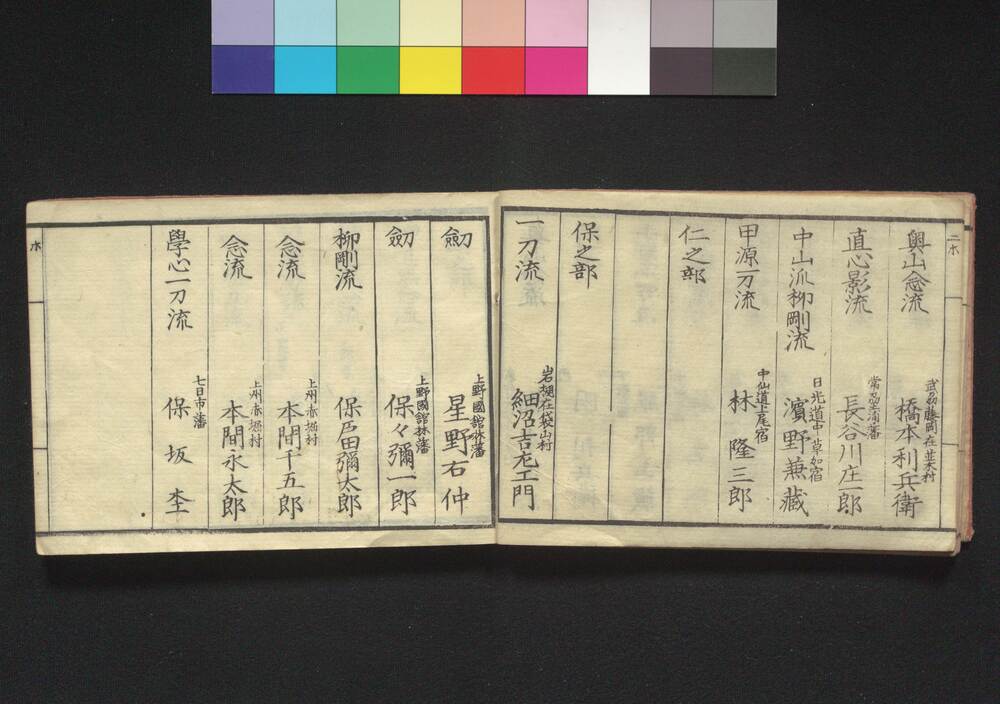 二ホ
奥山念流
武刕藤岡在韮木村
橋本利兵衛
直心影流
常刕土浦藩
長谷川庄一郎
中山派柳剛流
日光道中草加宿
濵野兼藏
甲源一刀流
中仙道上尾宿
林隆三郎
仁之部
保之部
一刀流
岩槻在袋山村
細沼吉左エ門
劔
上野國舘林藩
星野右仲
劔
上野國舘林藩
保々彌一郎
柳剛流
保 田彌太郎
念流
上州赤堀村
本間千五郎
念流
上州赤堀村
本間永太郎
學心一刀流
七日市藩
保坂杢
ホ